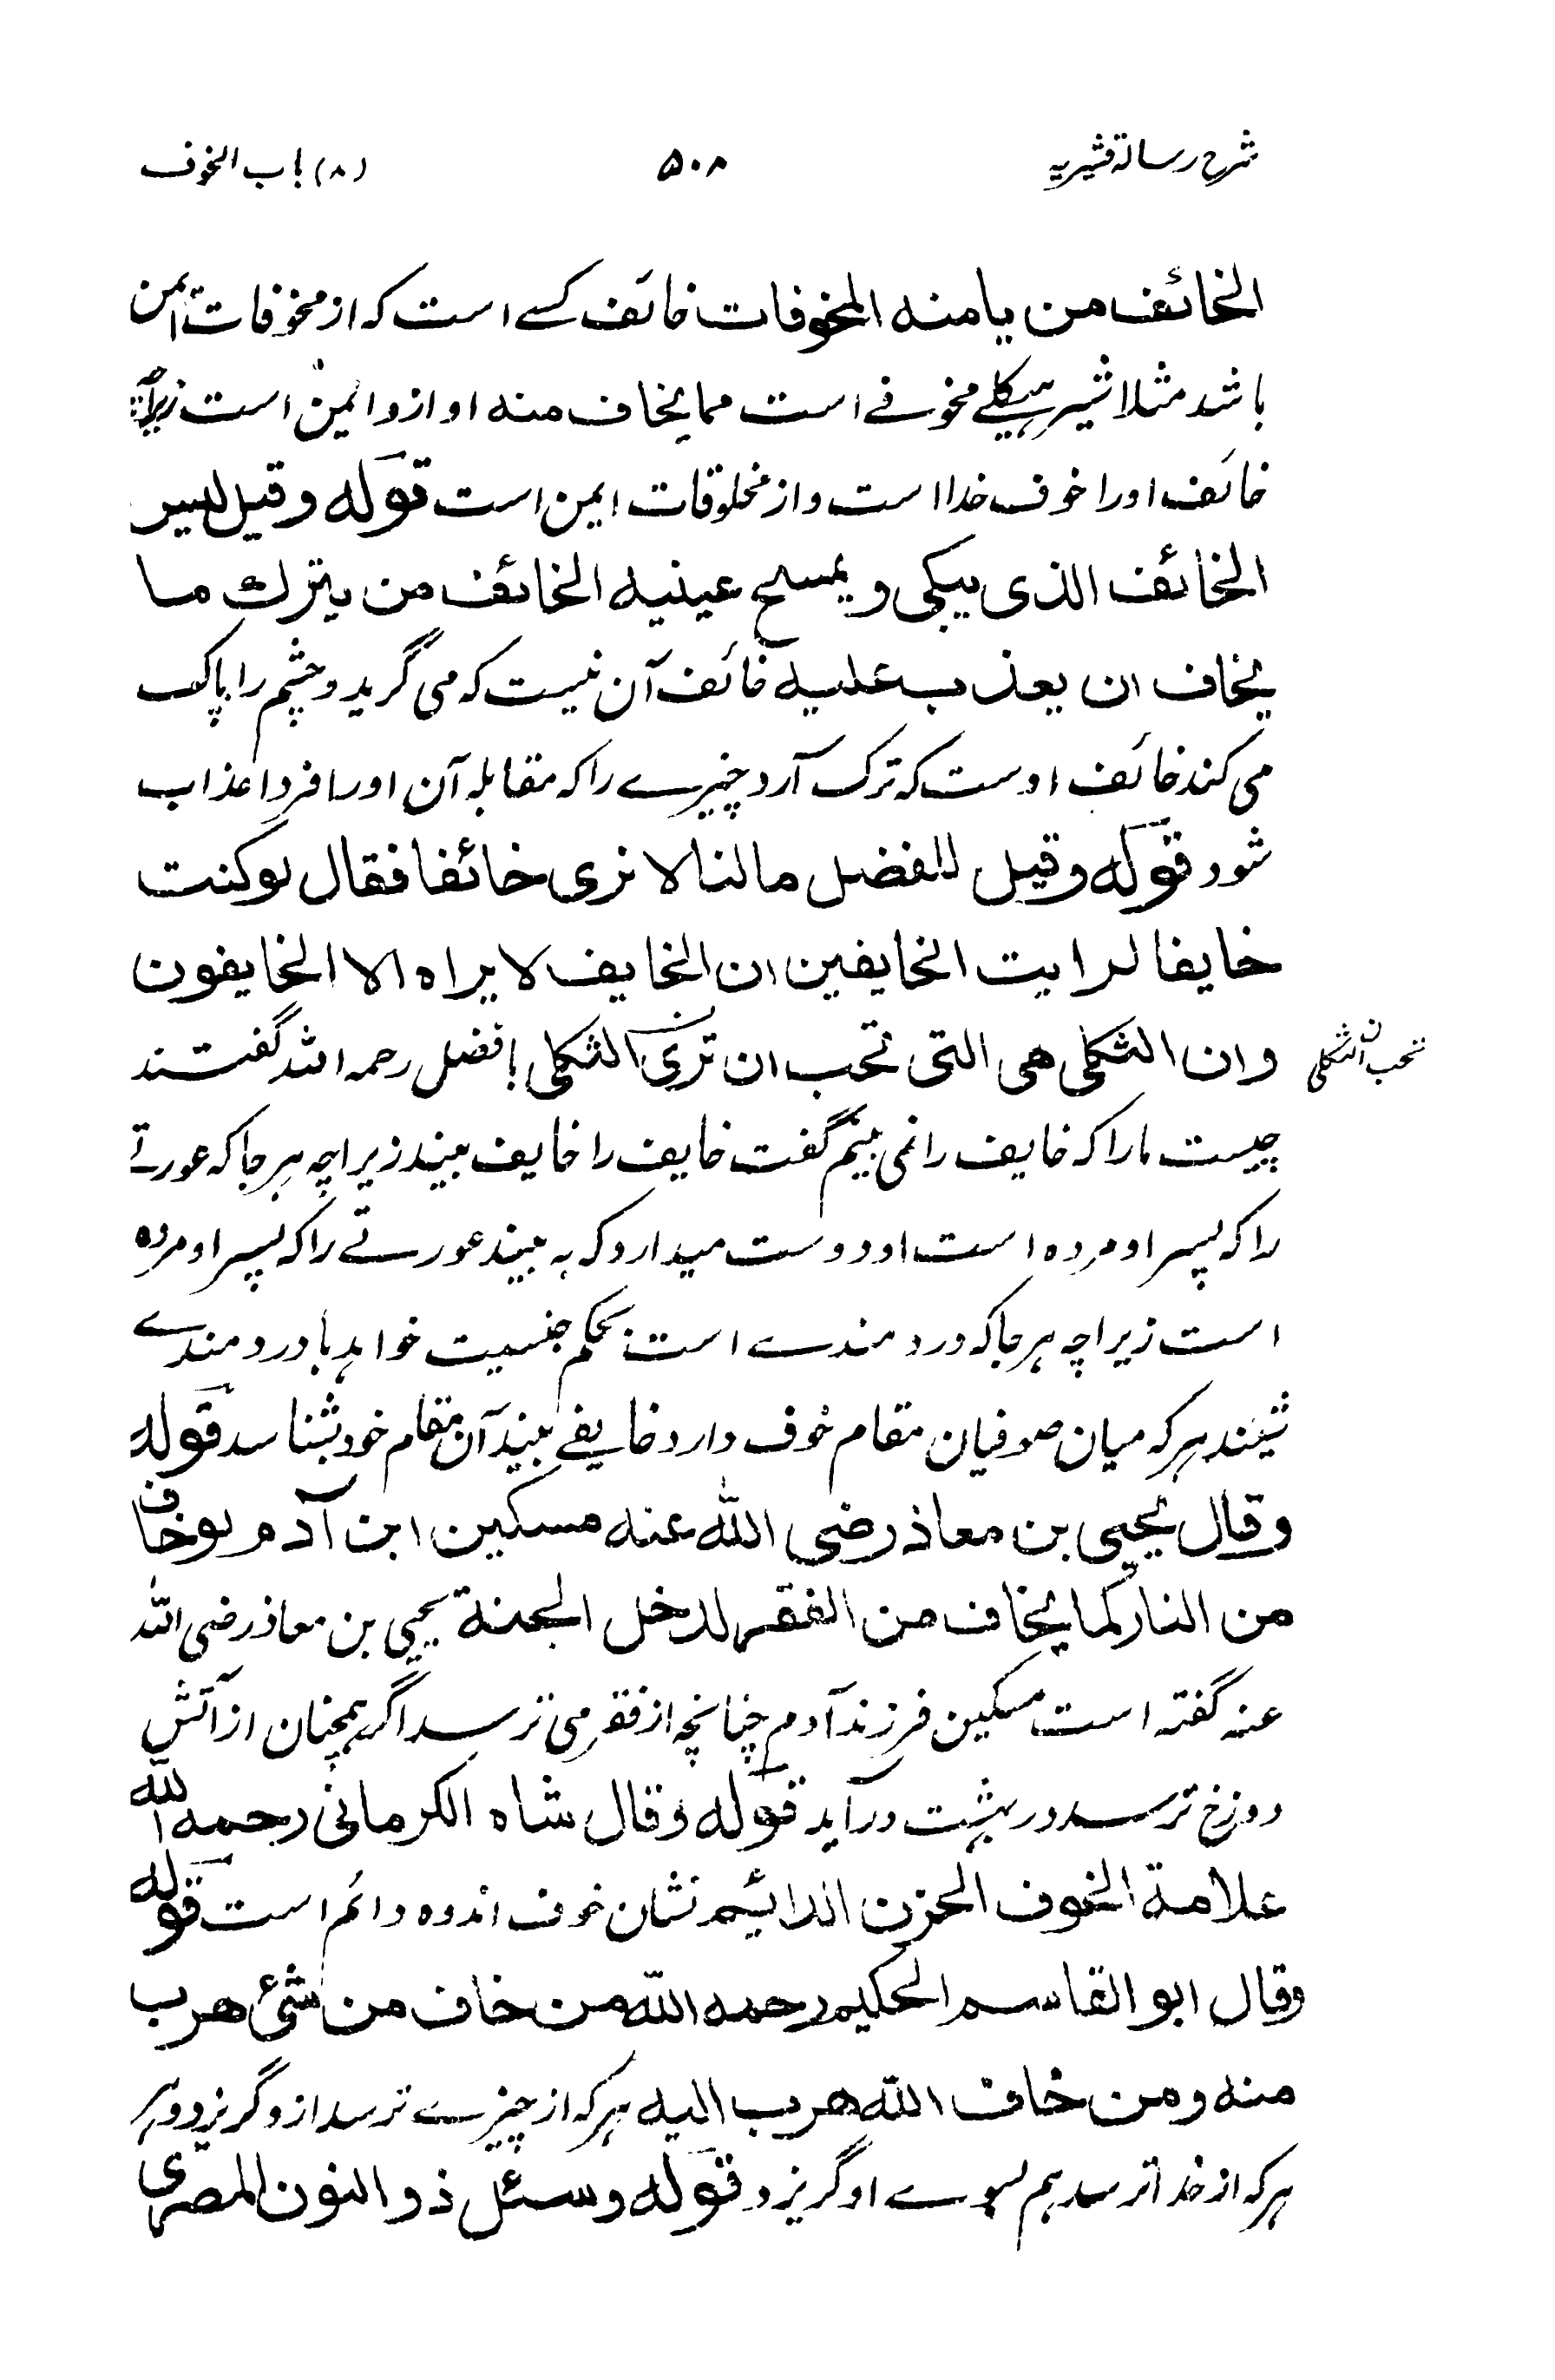 شرح رسالۀ قشیریہ ۵۰۸ (۸) باب الخوف
الخائف من یامنه المخوفات خائف کسے است کہ از مخوفات ایمن
باشد مثلا شیر ہیکلے مخوفے است مما یخاف منه او ازو ایمن است زیراچہ
خائف اورا خوف خدا است واز مخلوقات ایمن است قوله وقیل لیس
الخائف الذی یبکی ویمسح عینیه الخائف من یترك ما
یخاف ان یعذب علیه خائف آن نیست کہ می گرید و چشم را پاک
می کند خائف اوست کہ ترک آرد چیزے را کہ مقابلہ آن اورا فردا عذاب
شود قوله وقیل للفضل مالنا لا نری خائفا فقال لوکنت
خایفا لرایت الخایفین ان الخایف لا یراه الا الخایفون
وان الثکلی هی التی تحب ان تری الثکلی بافضل رحمہ اللہ گفتند
تحب ان الثکلی
چیست مارا کہ خایف را نمی بینیم گفت خایف را خایف بیند زیراچہ ہرجا کہ عورتے
را کہ پسر او مردہ است او دوست میدارد کہ بہ بیند عورتے را کہ پسر او مردہ
است زیراچہ ہرجا کہ دردمندے است بحکم جنسیت خواہد با دردمندے
نشیند ہرکہ میان صوفیان مقام خوف دارد خایفے بیند آن مقام خود بشناسد قوله
وقال یحیی بن معاذ رضی الله عنه مسکین ابن آدم لوخاف
من النار کما یخاف من الفقر لدخل الجنة یحیی بن معاذ رضی اللہ
عنہ گفتہ است مسکین فرزند آدم چنانچہ از فقر می ترسد اگر ہمچنان از آتش
دوزخ ترسد در بہشت درآید قوله وقال شاه الکرمانی رحمه الله
علامة الخوف الحزن الدائیم نشان خوف اندوہ دائم است قوله
وقال ابو القاسم الحکیم رحمه الله من خاف من شئ هرب
منه ومن خاف الله هرب الیه ہرکہ از چیزے ترسد ازو گریزد وہر
ہرکہ از خدا ترسد ہم بسوے او گریزد قوله وسئل ذوالنون المصری